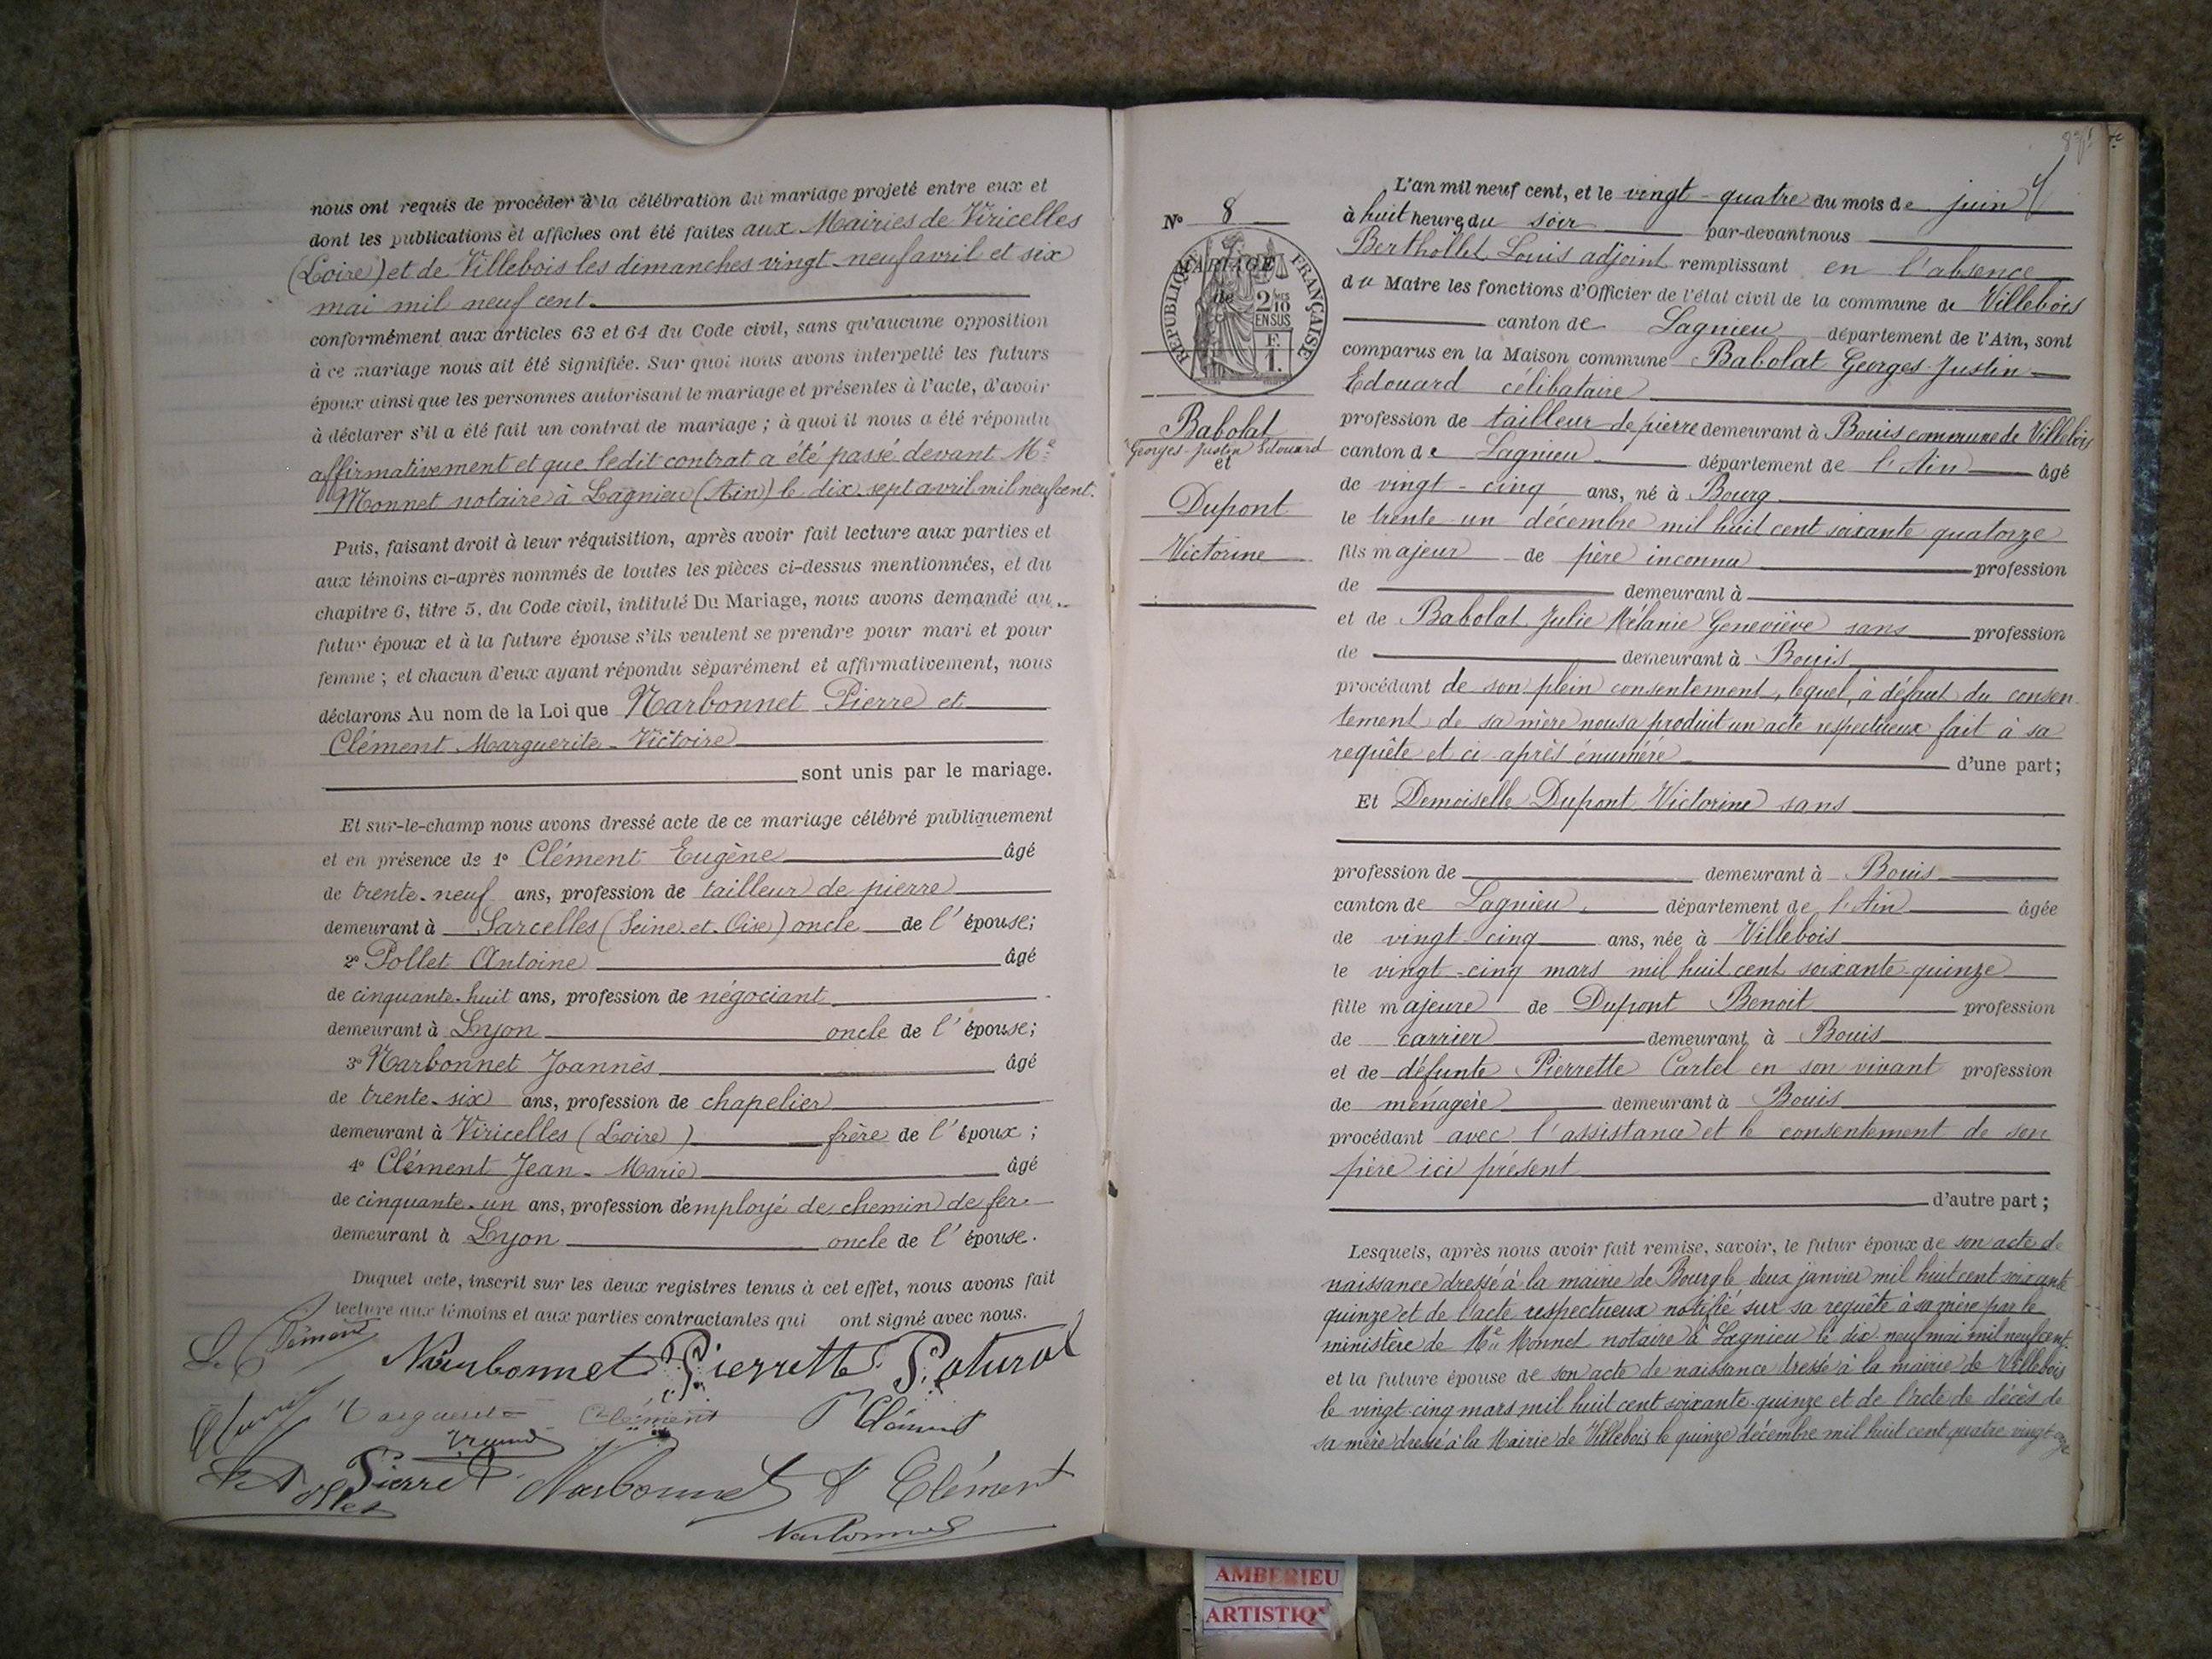 nous ont requis de procéder à la célébration du mariage projeté entre eux et
dont les publications et affiches ont été faites aux Mairies de Viricelles
(Loire) et de Villebois les dimanches vingt-neuf avril et six
mai mil neuf cent.
conformément aux articles 63 et 64 du Code civil, sans qu'aucune opposition
à ce mariage nous ait été signifiée. Sur quoi nous avons interpellé les futurs
époux ainsi que les personnes autorisant le mariage et présentes à l'acte, d'avoir
à déclarer s'il a été fait un contrat de mariage ; à quoi il nous a été répondu
affirmativement et que ledit contrat a été passé devant Me
Monnet notaire à Lagnieu (Ain) le dix-sept avril mil neuf cent.
Puis, faisant droit à leur réquisition, après avoir fait lecture aux parties et
aux témoins ci-après nommés de toutes les pièces ci-dessus mentionnées, et du
chapitre 6, titre 5, du Code civil, intitulé Du Mariage, nous avons demandé au
futur époux et à la future épouse s'ils veulent se prendre pour mari et pour
femme ; et chacun d'eux ayant répondu séparément et affirmativement, nous
déclarons Au nom de la Loi que Narbonnet Pierre et
Clément Marguerite-Victoire
sont unis par le mariage.
Et sur-le-champ nous avons dressé acte de ce mariage célébré publiquement
et en présence de 1° Clément Eugène âgé
de trente-neuf ans, profession de tailleur de pierre
demeurant à Sarcelles (Seine-et-Oise) oncle de l'épouse;
2° Pollet Antoine âgé
de cinquante-huit ans, profession de négociant
demeurant à Lyon oncle de l'épouse;
3° Narbonnet Joannès âgé
de trente-six ans, profession de chapelier
demeurant à Viricelles (Loire) frère de l'époux ;
4° Clément Jean-Marie âgé
de cinquante-un ans, profession d'employé de chemin de fer
demeurant à Lyon oncle de l'épouse.
Duquel acte, inscrit sur les deux registres tenus à cet effet, nous avons fait
lecture aux témoins et aux parties contractantes qui ont signé avec nous.
Clément
Narbonnet Pierrette Paturol
Clément
Clément
Pierre Narbonnet Clément
Narbonnet
N° 8
MARIAGE
de
RÉPUBLIQUE FRANÇAISE
2/10 EN SUS
F. 1.
Babolat
Georges Justin Edouard
et
Dupont
Victorine
L'an mil neuf cent, et le vingt-quatre du mois de juin
à huit heures du soir par-devant nous
Berthollet Louis adjoint remplissant en l'absence
du Maire les fonctions d'Officier de l'état civil de la commune de Villebois
canton de Lagnieu département de l'Ain, sont
comparus en la Maison commune Babolat Georges Justin
Edouard célibataire
profession de tailleur de pierre demeurant à Bouis commune de Villebois
canton de Lagnieu département de l'Ain âgé
de vingt-cinq ans, né à Bourg
le trente un décembre mil huit cent soixante quatorze
fils majeur de père inconnu profession
de demeurant à
et de Babolat Julie Mélanie Geneviève sans profession
de demeurant à Bouis
procédant de son plein consentement, lequel, à défaut du consen
tement de sa mère nous a produit un acte respectueux fait à sa
requête et ci-après énuméré d'une part;
Et Demoiselle Dupont Victorine sans
profession de demeurant à Bouis
canton de Lagnieu département de l'Ain âgée
de vingt-cinq ans, née à Villebois
le vingt-cinq mars mil huit cent soixante-quinze
fille majeure de Dupont Benoit profession
de carrier demeurant à Bouis
et de défunte Pierrette Cartel en son vivant profession
de ménagère demeurant à Bouis
procédant avec l'assistance et le consentement de son
père ici présent
d'autre part ;
Lesquels, après nous avoir fait remise, savoir, le futur époux de son acte de
naissance dressé à la mairie de Bourg le deux janvier mil huit cent soixante
quinze et de l'acte respectueux notifié sur sa requête à sa mère par le
ministère de Me Monnet notaire à Lagnieu le dix-neuf mai mil neuf cent.
et la future épouse de son acte de naissance dressé à la mairie de Villebois
le vingt-cinq mars mil huit cent soixante-quinze et de l'acte de décès de
sa mère dressé à la Mairie de Villebois le quinze décembre mil huit cent quatre vingt onze
AMBERIEU
ARTISTIQ